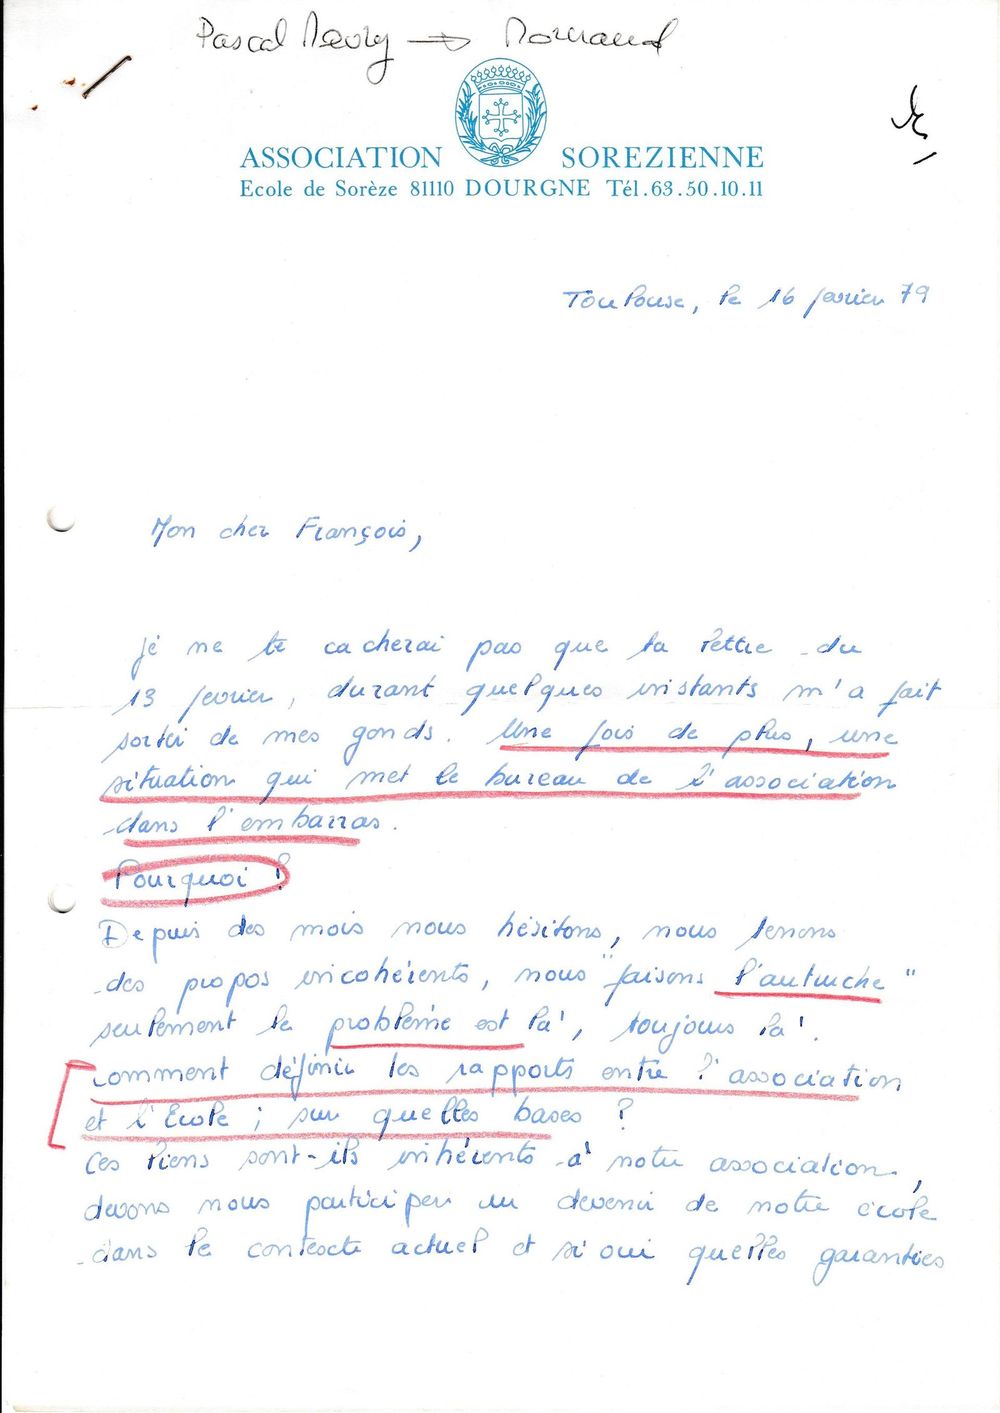 Pascal → Normand
ASSOCIATION SOREZIENNE
Ecole de Sorèze 81110 DOURGNE Tél. 63.50.10.11
Toulouse, le 16 février 79
Mon cher François,
Je ne te cacherai pas que ta lettre du
13 février, durant quelques instants m'a fait
sortir de mes gonds. Une fois de plus, une
situation qui met le bureau de l'association
dans l'embarras.
Pourquoi ?
Depuis des mois nous hésitons, nous tenons
des propos incohérents, nous "faisons l'autruche"
seulement le problème est là, toujours là !
Comment définir les rapports entre l'association
et l'Ecole ; sur quelles bases ?
Ces liens sont-ils inhérents à notre association,
devons nous participer au devenir de notre école
dans le contexte actuel et si oui quelles garanties